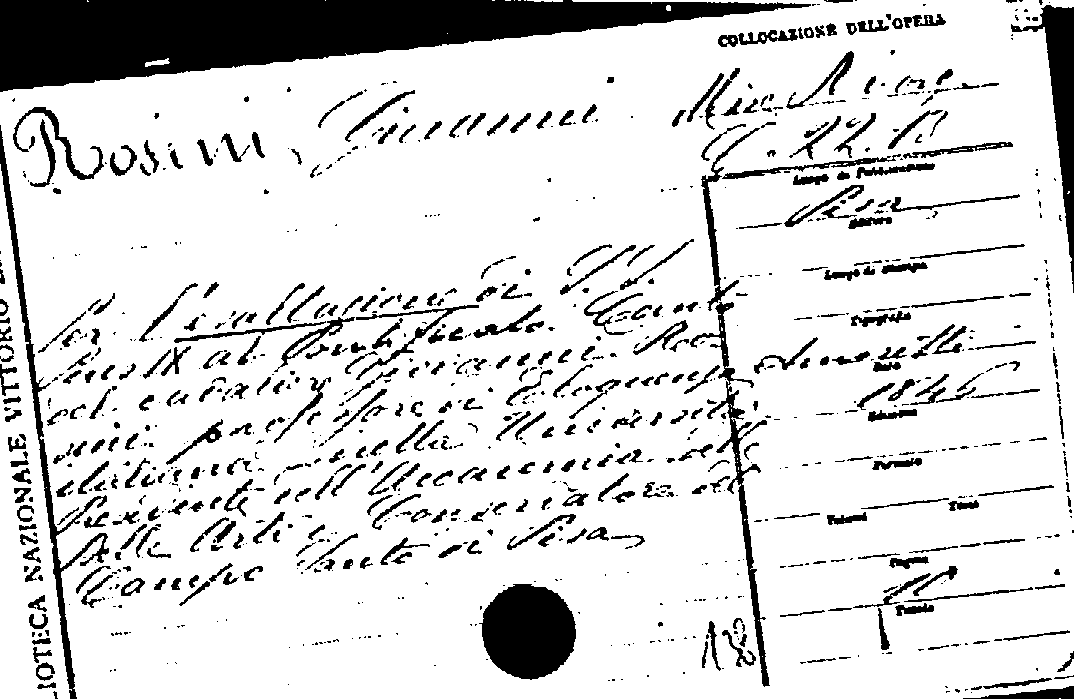 COLLOCAZIONE DELL'OPERA
Rosini, Giovanni Misc. Risorg.
22. B
Luogo di Pubblicazione
Pisa
Editore
Luogo di stampa
Tipografia
Data
1846
Edizione
Formato
Volumi Tomi
Pagine
Tavole
Per l'esaltazione di S. S.
Pio IX al Pontificato. Canto
del cavalier Giovanni Ro
sini professore di Eloquenza
italiana nella Università
Presidente dell'Accademia delle
Belle Arti e Conservatore del
Campo Santo di Pisa
138
LIOTECA NAZIONALE VITTORIO